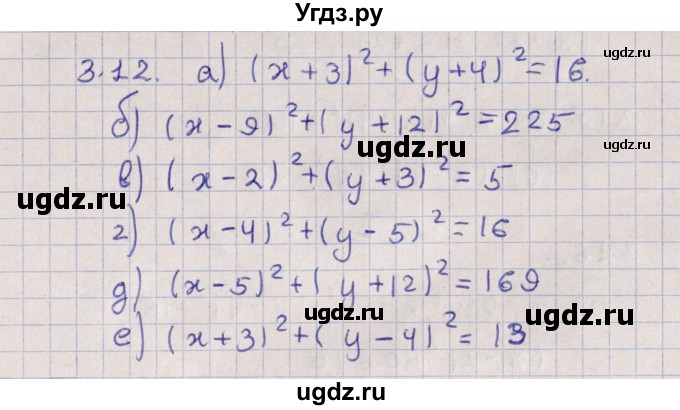 Угдз.ру
3.12. а) (x+3)²+(y+4)²=16.
ugdz.ru ugdz.ru
б) (x-9)²+(y+12)²=225
ugdz.ru
в) (x-2)²+(y+3)²=5
ugdz.ru ugdz.ru
г) (x-4)²+(y-5)²=16
ugdz.ru
д) (x-5)²+(y+12)²=169
ugdz.ru ugdz.ru
е) (x+3)²+(y-4)²=13
ugdz.ru